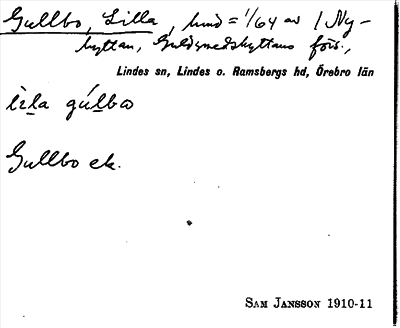 Gullbo, Lilla, hmd = 1/64 av 1 Ny-
hyttan, Guldsmedshyttans förs.,
Lindes sn, Lindes o. Ramsbergs hd, Örebro län
lìla gúlbω
Gullbo ek.
SAM JANSSON 1910-11